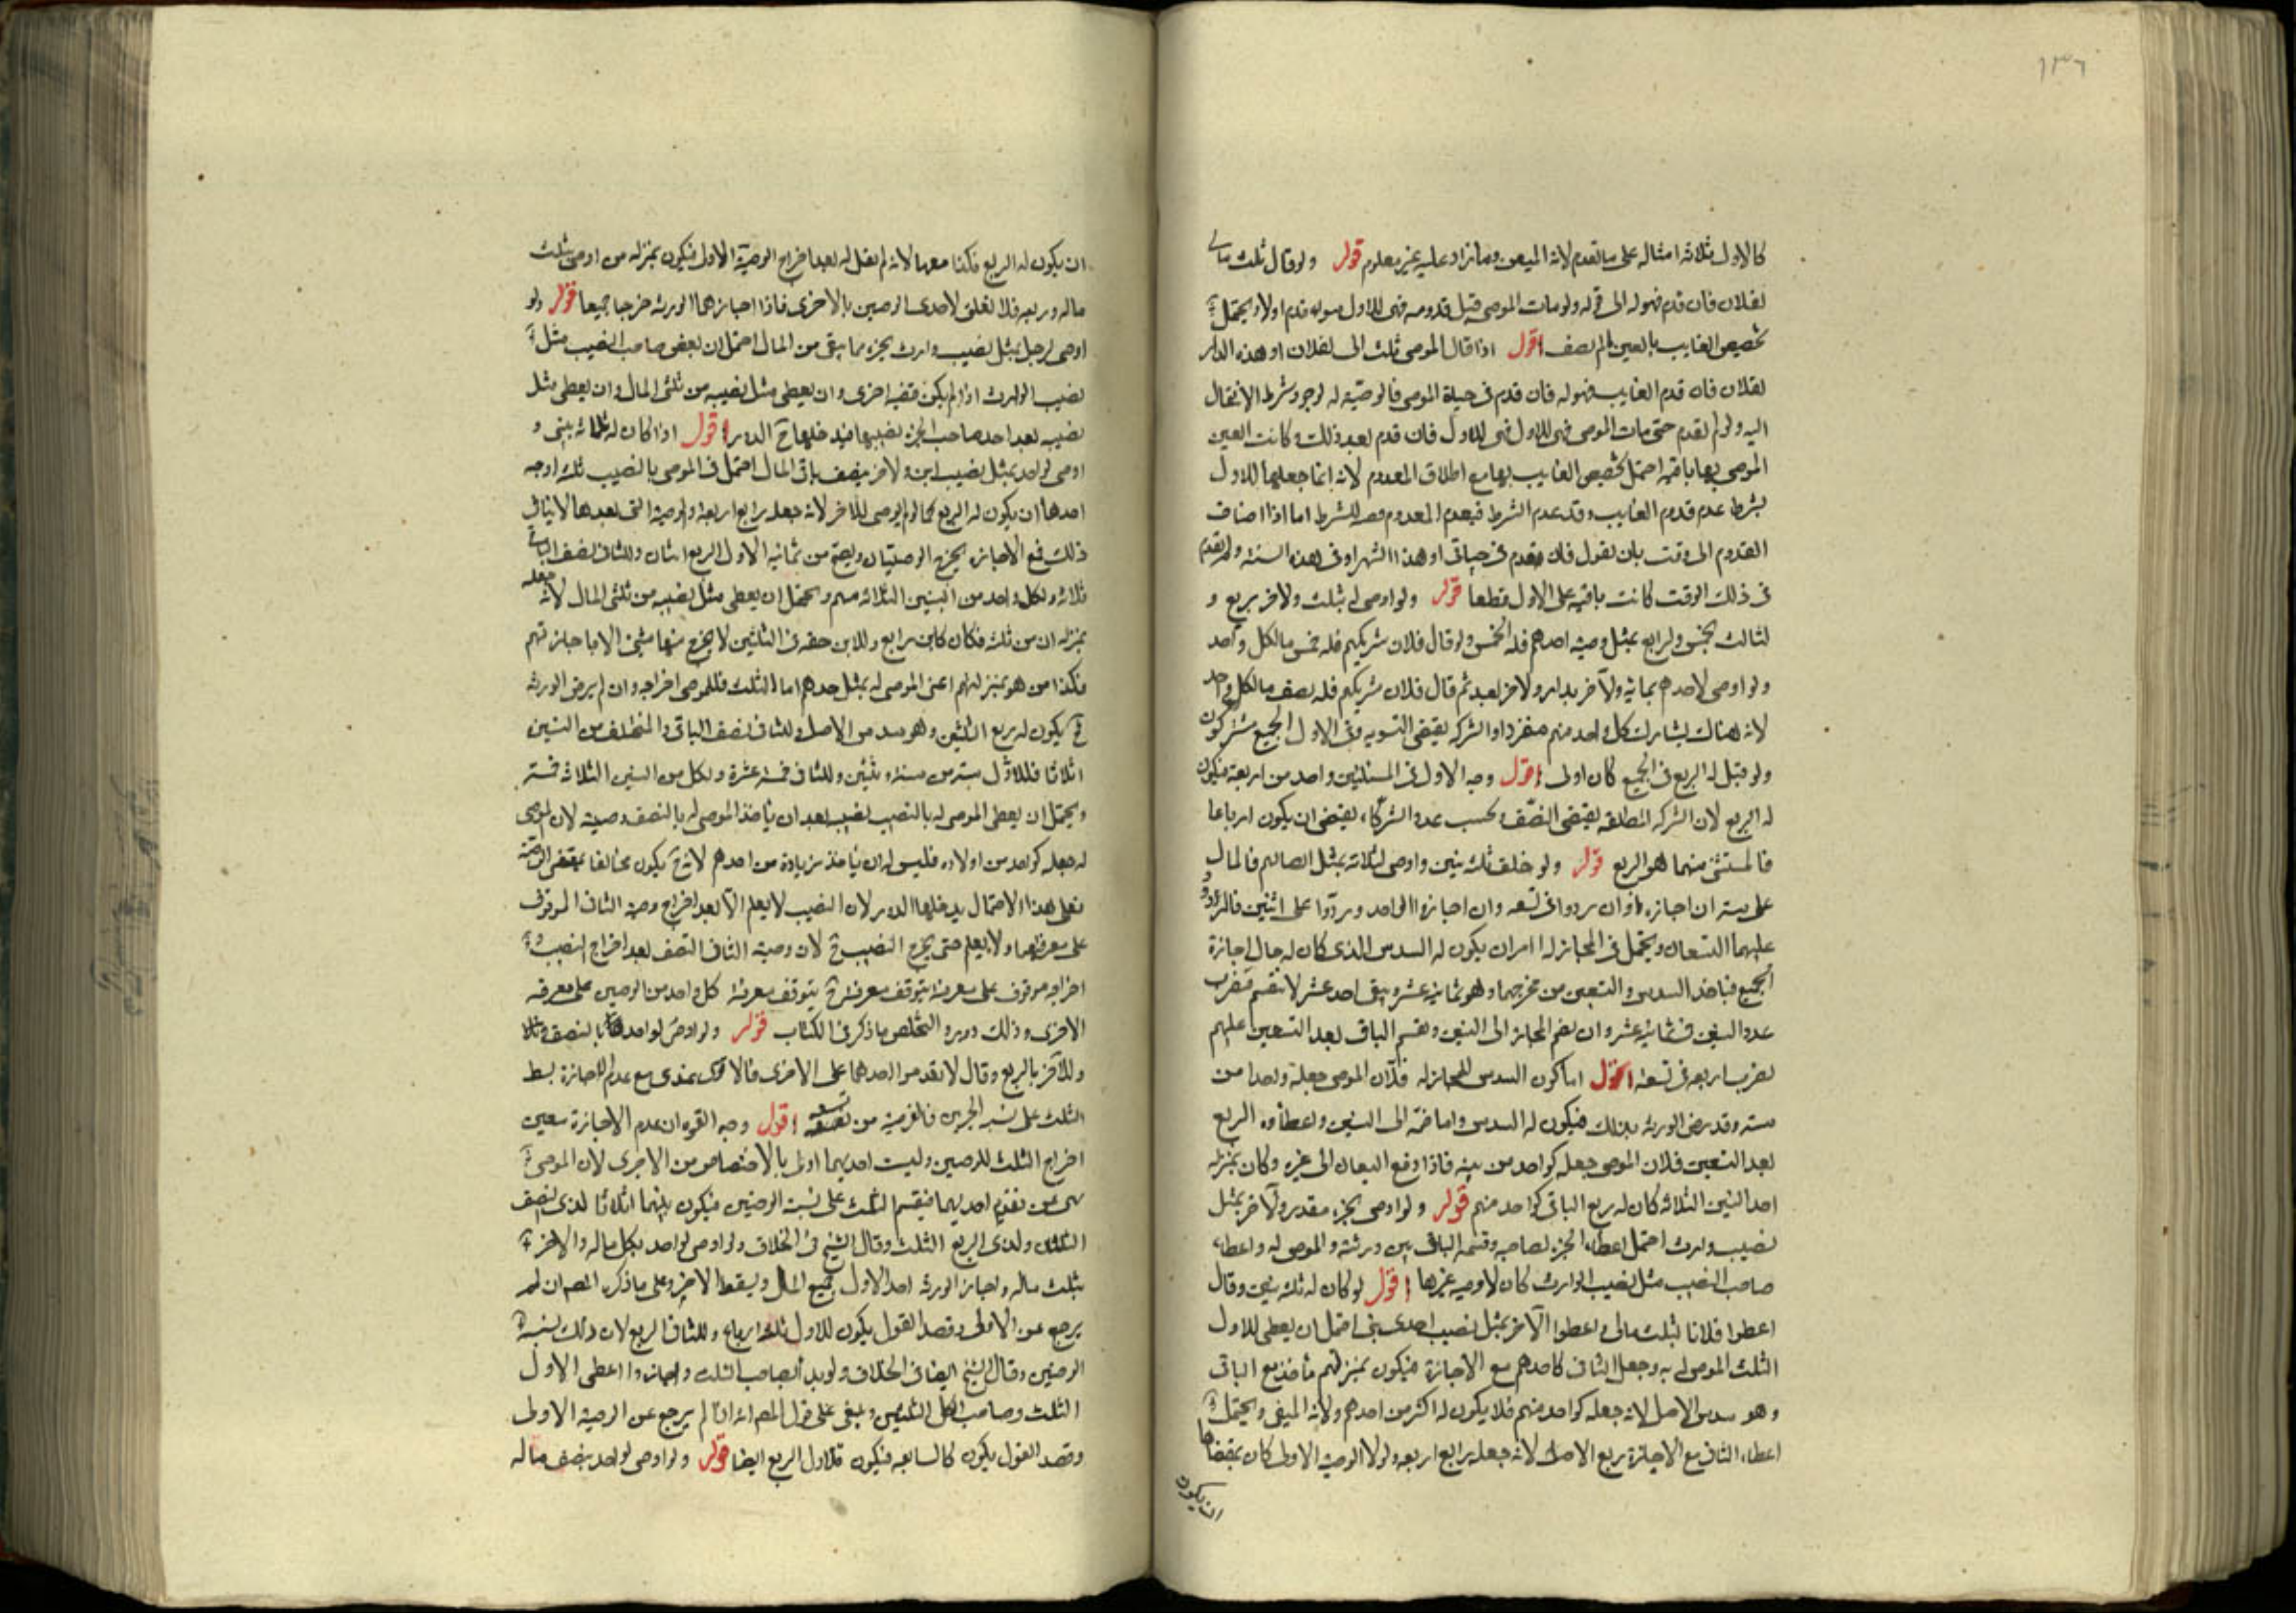 ١٣٦
كالاول ثلاثة امثاله على ما تقدم لانه المتيقن وما زاد عليه غير معلوم قوله ولو قال ثلث مالى
لفلان فان قدم فهو له الى قوله ولو مات الموصى قبل قدومه فهى للاول سواء قدم اولا ويحتمل
تخصيص الغايب بالعين اقول اذا قال الموصى ثلث مالى لفلان او هذه الدار
لفلان فان قدم الغايب فهو له فان قدم فى حياة الموصى فالوصية له لوجود شرط الانتقال
اليه ولو لم يقدم حتى مات الموصى فهى للاول فهى للاول فان قدم بعد ذلك وكانت العين
الموصى بها باقية احتمل تخصيص الغايب بها مع اطلاق المعدوم لانه انما جعلها للاول
بشرط عدم قدوم الغايب وقد عدم الشرط فيعدم المعدوم للشرط اما اذا اضاف
القدوم الى وقت بان يقول فان قدم فى حياتى او هذا الشهر او فى هذه السنة ولم يقدم
فى ذلك الوقت كانت باقية على الاول قطعا قوله ولو اوصى له بثلث ولاخر بربع و
لثالث بخمس ولرابع بمثل وصية احدهم فله الخمس ولو قال فلان شريكهم فله خمس ما لكل واحد
ولو اوصى لاحدهم بماية ولاخر بدار ولاخر بعبد ثم قال فلان شريكهم فله نصف ما لكل واحد
لانه هناك يشارك كل واحد منهم منفردا والشركة يقتضى التسوية وفى الاول الجميع مشتركون
ولو قيل له الربع فى الجميع كان اولى اقول وجه الاول فى المسئلتين واحد من اربعة فيكون
له الربع لان الشركة المطلقة يقتضى النصف وبحسب عدد الشركاء يقتضى ان يكون ارباعا
فالمستثنى منهما هو الربع قوله ولو خلف ثلثة بنين واوصى لثلاثة بمثل انصبائهم فالمال
على ستة ان اجازوا وان ردوا فمن تسعة وان اجازوا لواحد وردوا على اثنين فللمردود
عليهما التسعان ويحتمل فى المجاز له امران يكون له السدس الذى كان له حال اجازة
الجميع فياخذ السدس والتسعين من مخرجهما وهو ثمانية عشر ويبقى احد عشر لا تنقسم فتضرب
عدد البنين فى ثمانية عشر وان يضم المجاز الى البنين ويقسم الباقى بعد التسعين عليهم
يضرب اربعة فى تسعة اقول اما كون السدس للمجاز له فلان الموصى جعله واحدا من
ستة وقد رضى الورثة بذلك فيكون له السدس واما ضمه الى البنين واعطاوه الربع
بعد التسعين فلان الموصى جعله كواحد من بنيه فاذا دفع التسعان الى غيره وكان بمنزلة
احد البنين الثلاثة كان له ربع الباقى كواحد منهم قوله ولو اوصى بجزء مقدر ولاخر بمثل
نصيب وارث احتمل اعطاء الجزء لصاحبه وقسمة الباقى بين ورثته والموصى له واعطاء
صاحب النصيب مثل نصيب الوارث كان لا وصية غيرها اقول لو كان له ثلثة بنين وقال
اعطوا فلانا ثلث مالى واعطوا الآخر بمثل نصيب احدى بنى احتمل ان يعطى للاول
الثلث الموصى به وجعل الثانى كاحدهم مع الاجازة فيكون بمنزلتهم فاخذ ربع الباقى
وهو سدس الاصل لانه جعله كواحد منهم فلا يكون له اكثر من احدهم ولانه المتيقن ويحتمل
اعطاء الثانى مع الاجازة ربع الاصل لانه جعله رابع اربعة ولولا الوصية الاولى كان مقتضاها
ان يكون
ان يكون له الربع فكذا معها لانه لم يقل له بعد اخراج الوصية الاولى فيكون بمنزلة من اوصى بثلث
ماله وربعه فلا تعلق لاحدى الوصيتين بالاخرى فاذا اجازهما الورثة خرجا جميعا قوله ولو
اوصى لرجل بمثل نصيب وارث بجزء مما يبقى من المال احتمل ان يعطى صاحب النصيب مثل
نصيب الوارث اذا لم يكن وصية اخرى وان يعطى مثل نصيبه من ثلثى المال وان يعطى مثل
نصيبه بعد اخذ صاحب الجزء نصيبه فيدخلها ح الدور اقول اذا كان له ثلاثة بنى و
اوصى لواحد بمثل نصيب ابن ولاخر بنصف باقى المال احتمل فى الموصى بالنصيب ثلثة اوجه
احدها ان يكون له الربع كما لو لم يوصى للآخر لانه جعله رابع اربعة والوصية التى بعدها لا ينافى
ذلك فمع الاجازة يخرج الوصيتان ويصح من ثمانية الاول الربع اثنان وللثانى نصف الباقى
ثلاثة ولكل واحد من البنين الثلاثة سهم ويحتمل ان يعطى مثل نصيبه من ثلثى المال لانه جعله
بمنزلة ابن من ثلثة فكان كابن رابع وللابن حقه فى الثلثين لا يخرج منها شئ الا باجازتهم
فكذا من هو بمنزلتهم اعنى الموصى له بمثل حدهم اما الثلث فللموصى اخراجه وان لم يرض الورثة
ح يكون له ربع الثلثين وهو سدس الاصل وللثانى نصف الباقى والمتخلف بين البنين
اثلاثا فللاول ستة من ستة وثلثين وللثانى خمسة عشرة ولكل من البنين الثلاثة خمسة
ويحتمل ان يعطى الموصى له بالنصيب نصيبه بعد ان ياخذ الموصى له بالنصف وصيته لان الموصى
له جعله كواحد من اولاده فليس له ان ياخذ زيادة من احدهم لانه ح يكون مخالفا لمقتضى الوصية
فعلى هذا الاحتمال يدخلها الدور لان النصيب لا يعلم الا بعد اخراج وصية الثانى الموقوف
على معرفتهما ولا يعلم حتى يخرج النصيب ح لان وصية الثانى النصف بعد اخراج النصيب و
اخراجه موقوف على معرفته فيتوقف معرفة كل واحد من الوصيتين على معرفة
الاخرى وذلك دور والتخلص ما ذكر فى الكتاب قوله ولو اوصى لواحد بالنصف
وللآخر بالربع وقال لا تقدموا احدهما على الاخرى فالاقوى عندى مع عدم الاجازة بسط
الثلث على نسبة الجزئين فالفريضة من تسعة اقول وجه القوة ان عدم الاجازة تعيين
اخراج الثلث للوصيتين وليست احديهما اولى بالاختصاص من الاخرى لان الموصى
نهى عن تقديم احديهما فيقسم الثلث على نسبة الوصيتين فيكون بينهما اثلاثا لذى النصف
الثلثان ولذى الربع الثلث وقال الشيخ فى الخلاف ولو اوصى لواحد بكل ماله والاخر
بثلث ماله واجاز الورثة اخذ الاول جميع المال ويسقط الاخر وعلى ما ذكره المصم ان لم
يرجع عن الاولى وقصد العول يكون للاول ثلثة ارباع وللثانى الربع لان ذلك نسبة
الوصيتين وقال الشيخ ايضا فى الخلاف ولو بدأ بصاحب الثلث واجازوا اعطى الاول
الثلث وصاحب الكل الثلثين وينبغى على قول المصم انه ان لم يرجع عن الوصية الاولى
وقصد العول يكون كالسابعة فيكون للاول الربع ايضا قوله ولو اوصى لواحد بنصف ماله